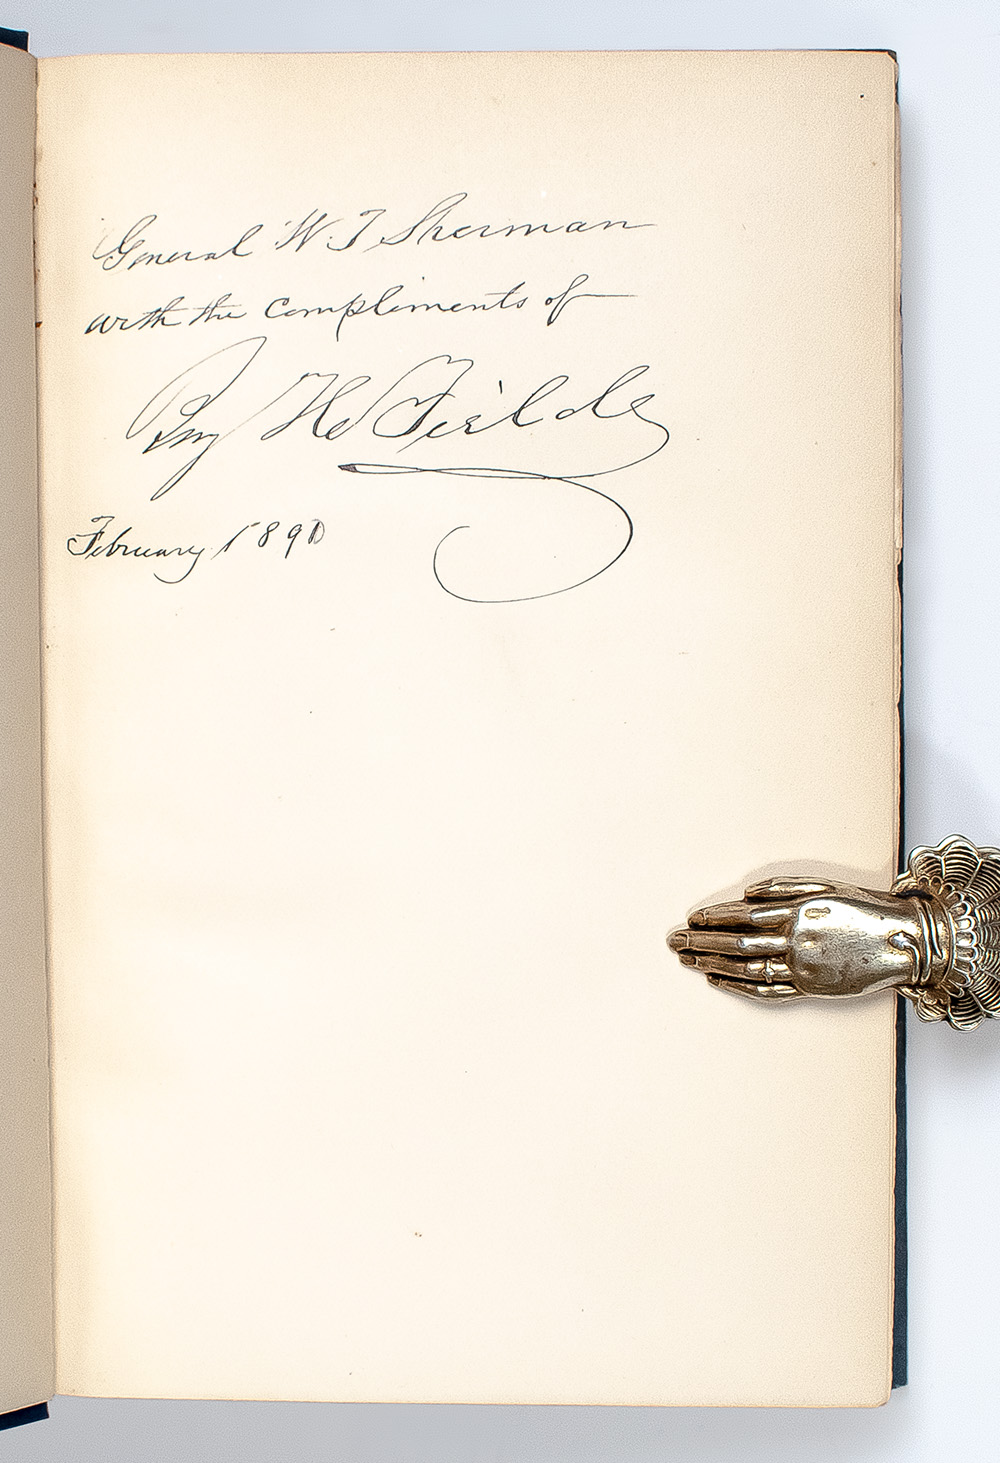 General W. T. Sherman
with the compliments of
Benj H Field
February 1890